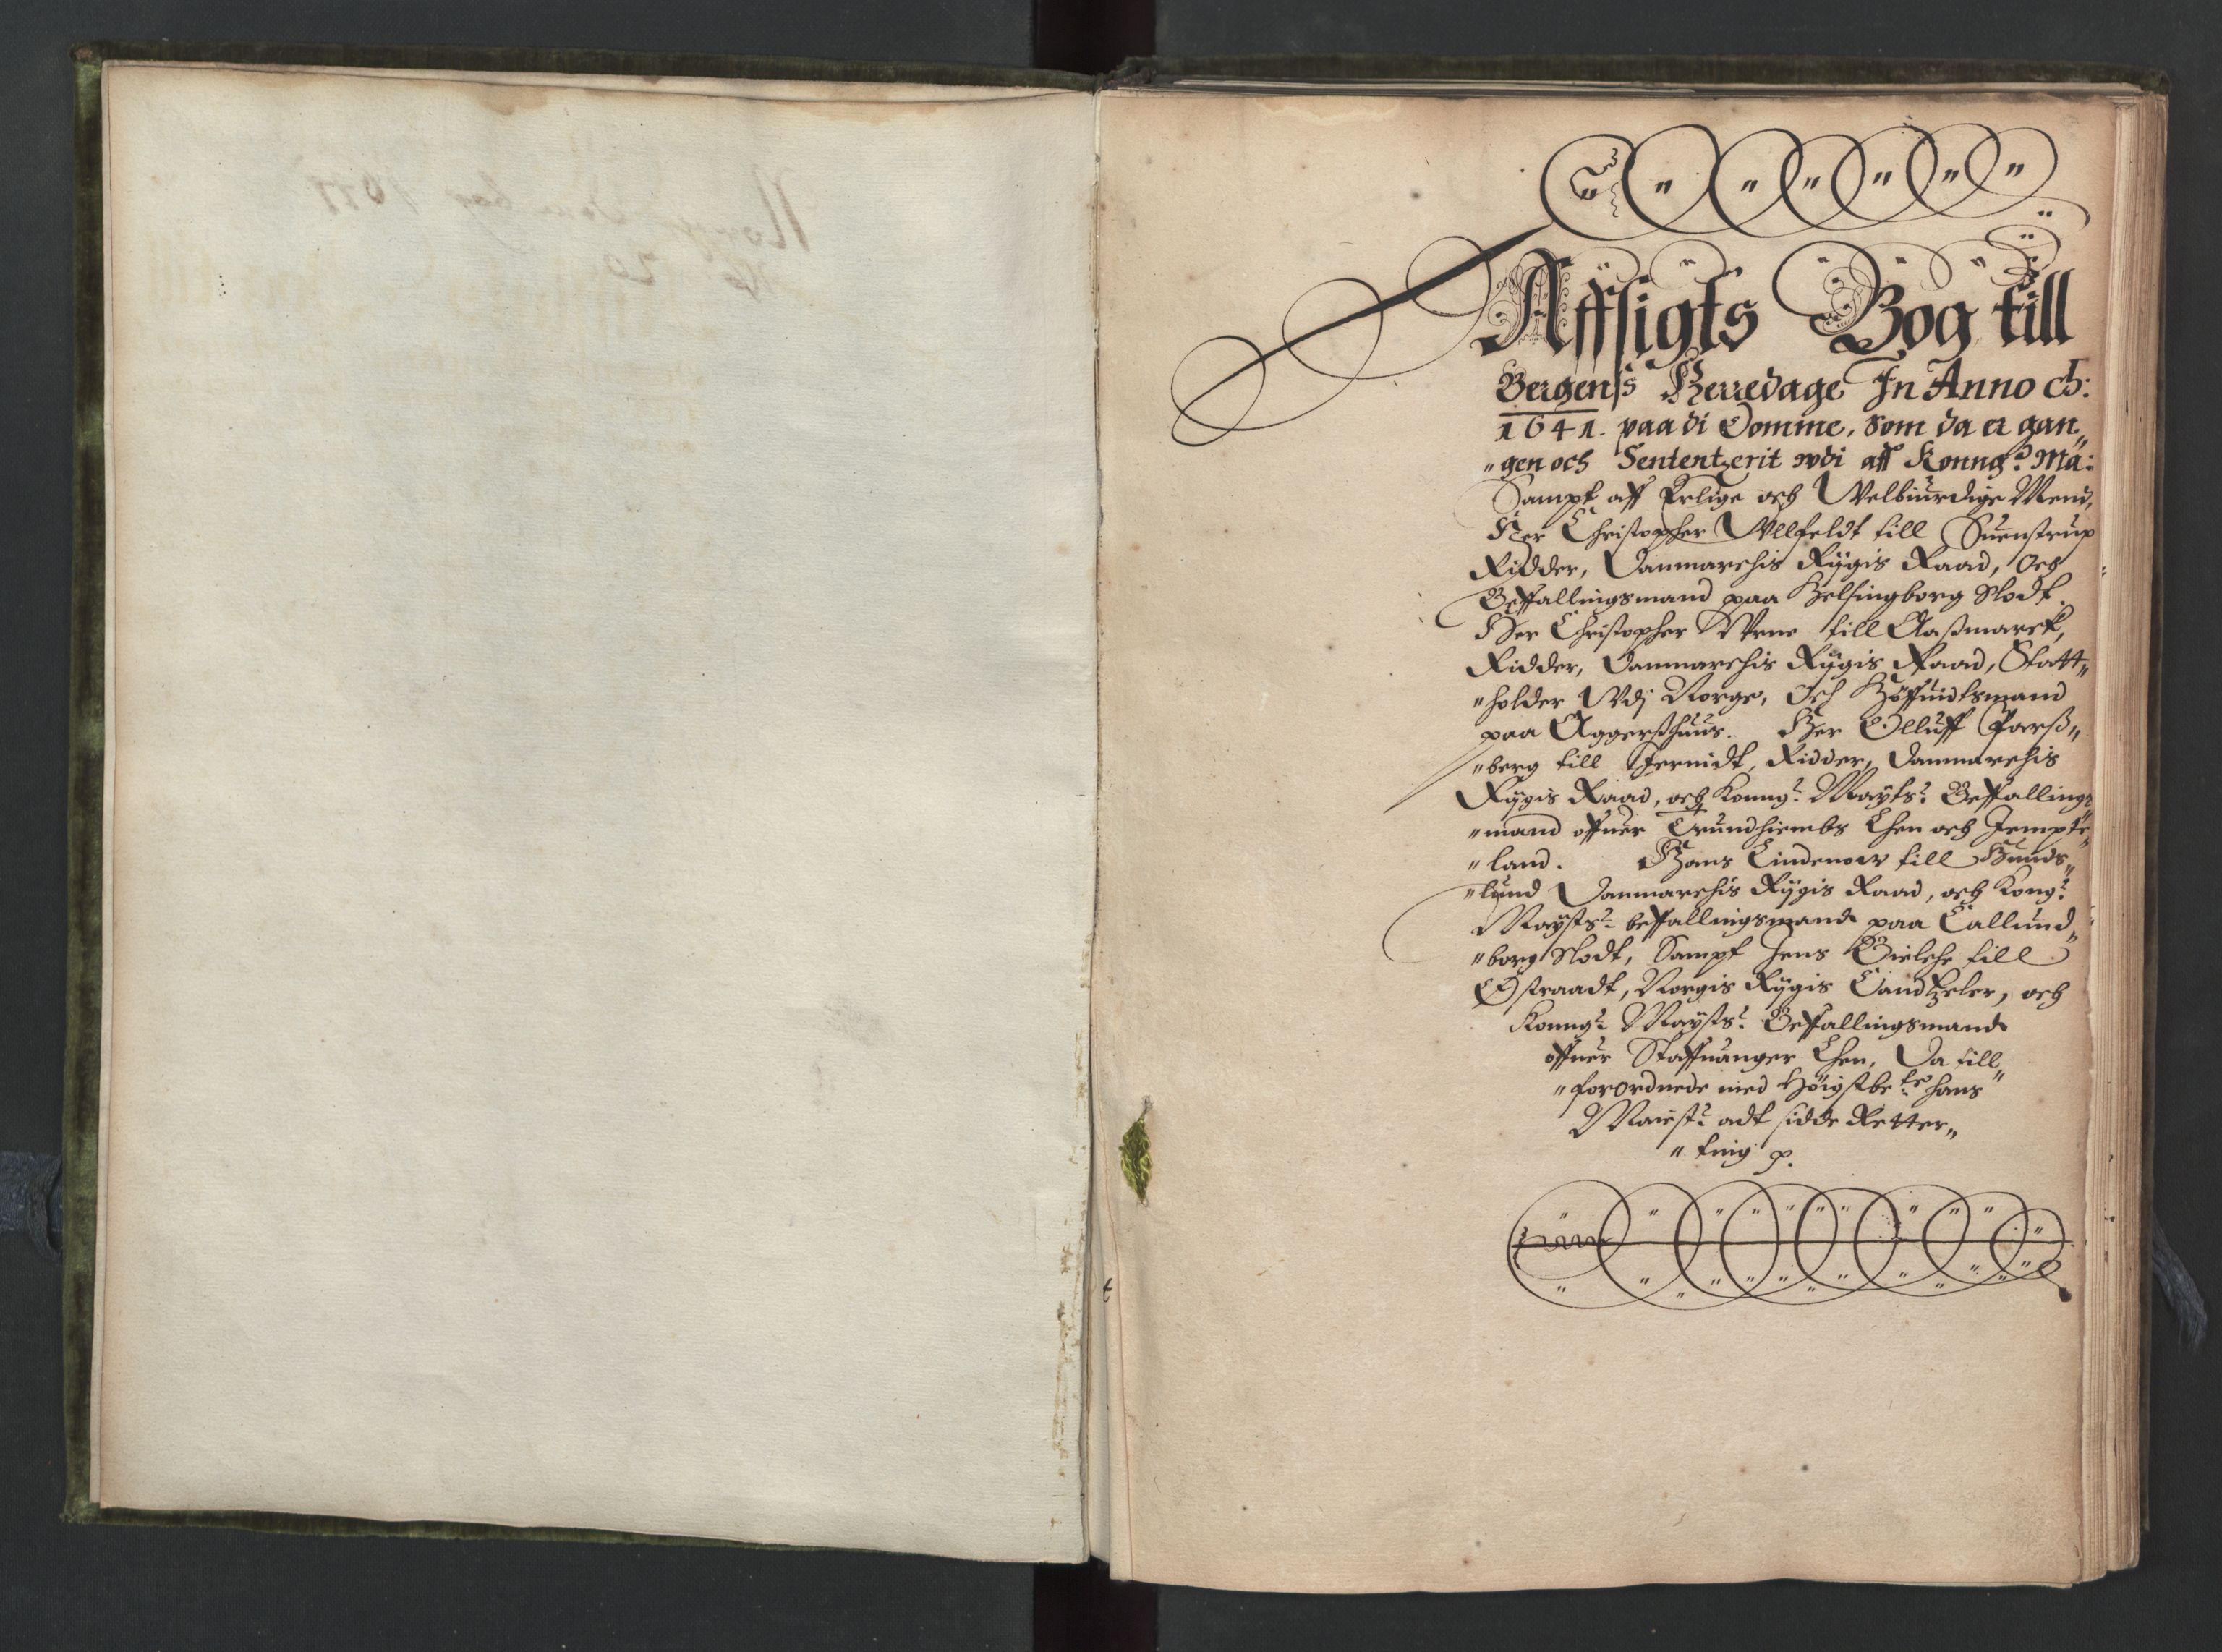 Affsigts Bog till
Bergenß Herredage In Anno ch:
1641. paa di Domme, som da er gan„
„gen och Sententzerit wdi aff Konng: Ma:
Sampt aff Erlige och Welbiurdige Mend,
Her Christopher Wllfeldt till Suenstrup
Ridder, Danmarchis Rygis Raad, Och
Beffallingsmand paa Helsingborg Slodt.
Her Christopher Wrne till Aaßmarck,
Ridder, Danmarchis Rygis Raad, Statt„
„holder Wdj Norge, Och Höffuidtsmand
paa Aggerßhuus. Her Olluff Parß„
„berg till Jernidt, Ridder, Danmarchis
Rygis Raad, och Konng: Mayts: Beffallings„
„mand offuer Trundhiembs Lhen och Jempte„
„land. Hans Lindenow till Hunds„
„lund Danmarchis Rygis Raad, och Kong:
Maysts: beffallingsmand paa Callund„
„borg Slodt, Sampt Jens Bielche till
Østraadt, Norgis Rygis Candtzeler, och
Konng: Maysts: Beffallingsmand
offuer Staffuanger Lhen, Da till„
„forordnede med Höigstbete: hans
Maiest: adt sidde Retter„
„ting p.